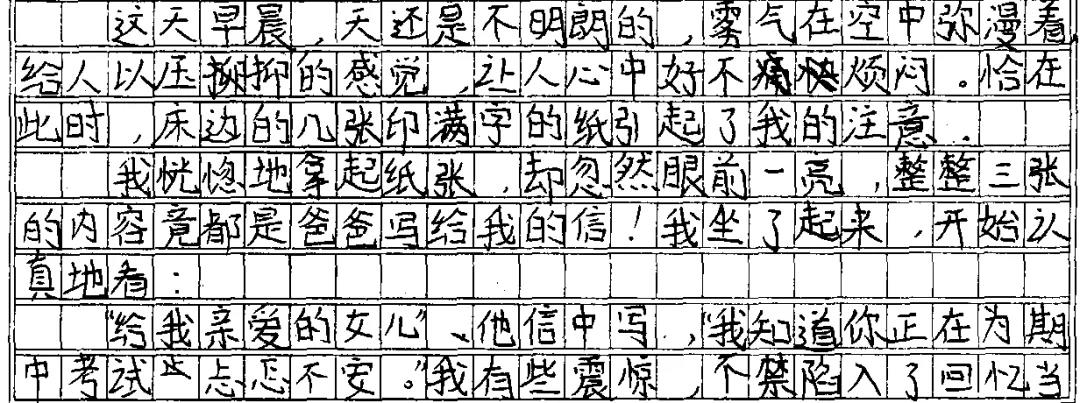 这天早晨,天还是不明朗的,雾气在空中弥漫着,
给人以压抑的感觉,让人心中好不痛快烦闷。恰在
此时,床边的几张印满字的纸引起了我的注意.
我恍惚地拿起纸张,却忽然眼前一亮,整整三张
的内容竟都是爸爸写给我的信!我坐了起来,开始认
真地看:
"给我亲爱的女儿"、他信中写,"我知道你正在为期
中考试忐忑不安。"我有些震惊,不禁陷入了回忆当